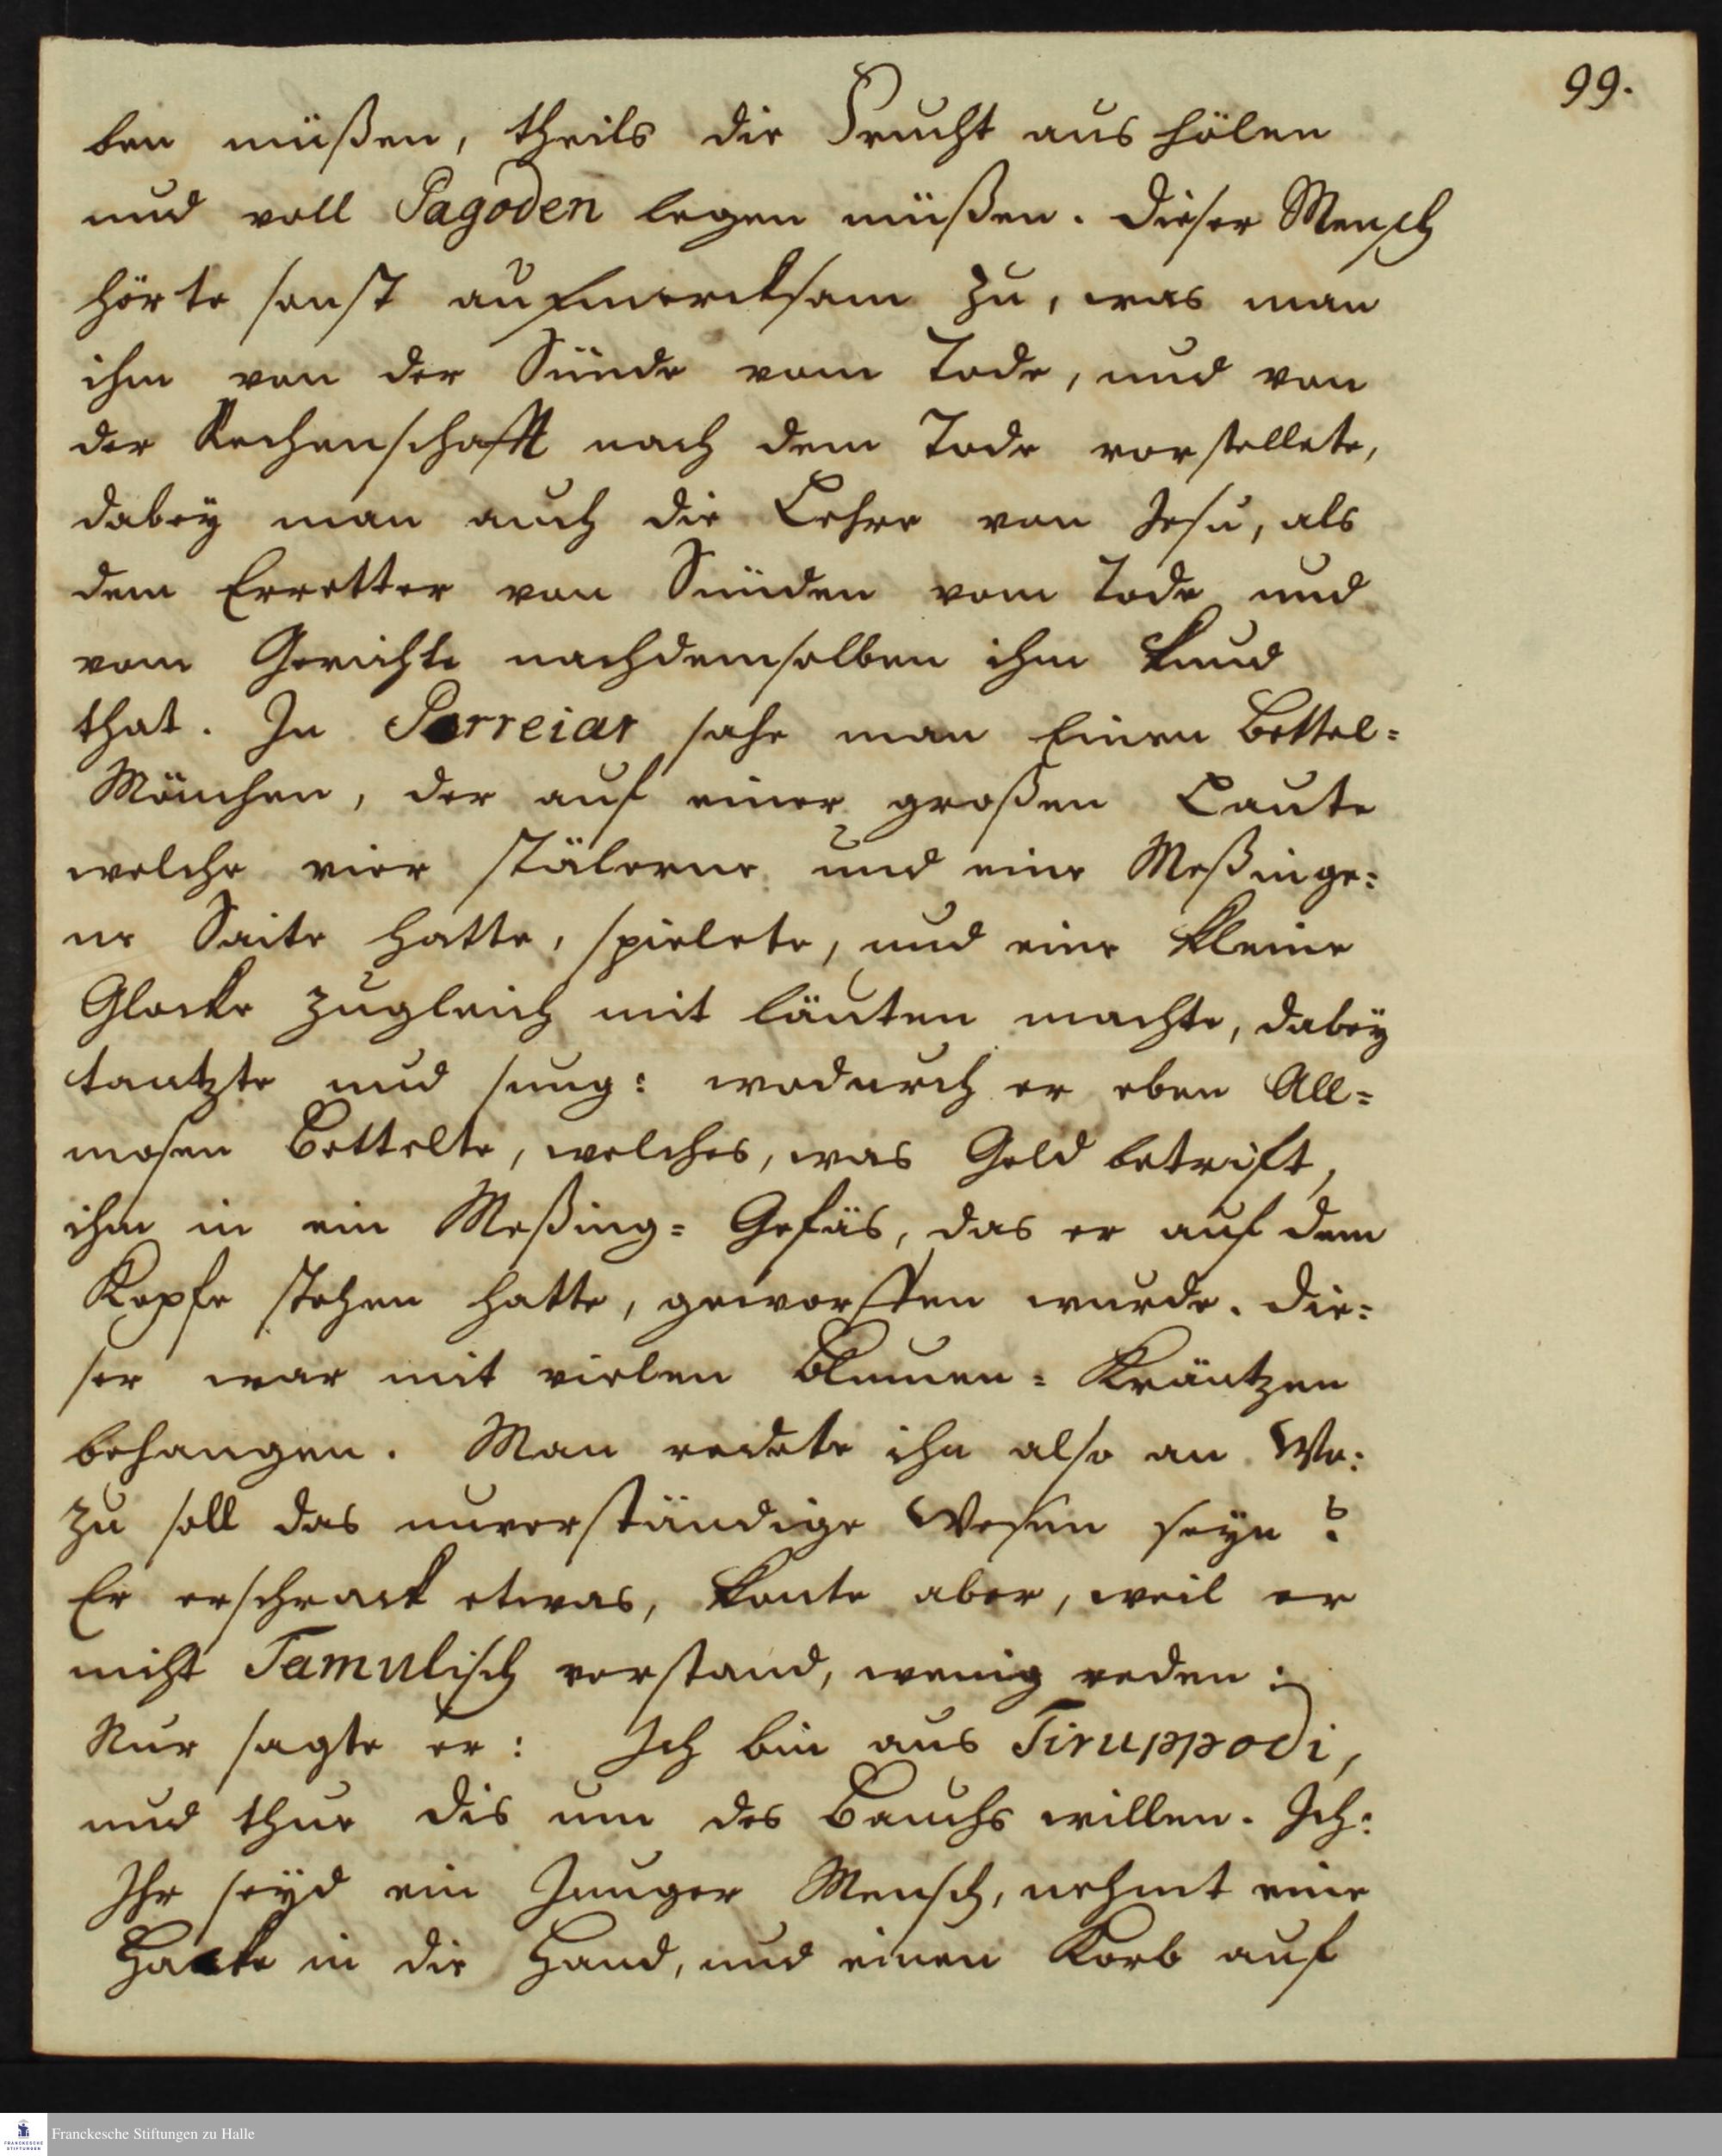 99.
ben müßen, theils die Frucht aus hölen
und voll Pagoden legen müßen. Dieser Mensch
hörte sonst aufmercksam zu, was man
ihm von der Sünde vom Tode, und von
der Rechenschafft nach dem Tode vorstellete,
dabey man auch die Lehre von Jesu, als
dem Erretter von Sünden vom Tode und
vom Gerichte nachdemselben ihm kund
that. In Porreiar sahe man Einen Bettel=
Mönchen, der auf einer großen Laute
welche vier stälerne und eine Meßinge=
ne Saite hatte, spielete, und eine kleine
Glocke zugleich mit läuten machte, dabey
tantzte und sung: wodurch er eben All=
mosen Bettelte, welches, was Geld betrift,
ihm in ein Meßing= Gefäs, das er auf dem
Kopfe stehen hatte, geworffen wurde. Die=
ser war mit vielen Blumen= Kräntzen
behangen. Man redete ihn also an Wo=
zu soll das unverständige Wesen seyn?
Er erschrack etwas, konte aber, weil er
nicht Tamulisch verstand, wenig reden:
Nur sagte er: Ich bin aus Tiruppodi,
und thue dis um des Bauchs willen. Ich:
Ihr seyd ein Junger Mensch, nehmt eine
Hacke in die Hand, und einen Korb auf
Franckesche Stiftungen zu Halle